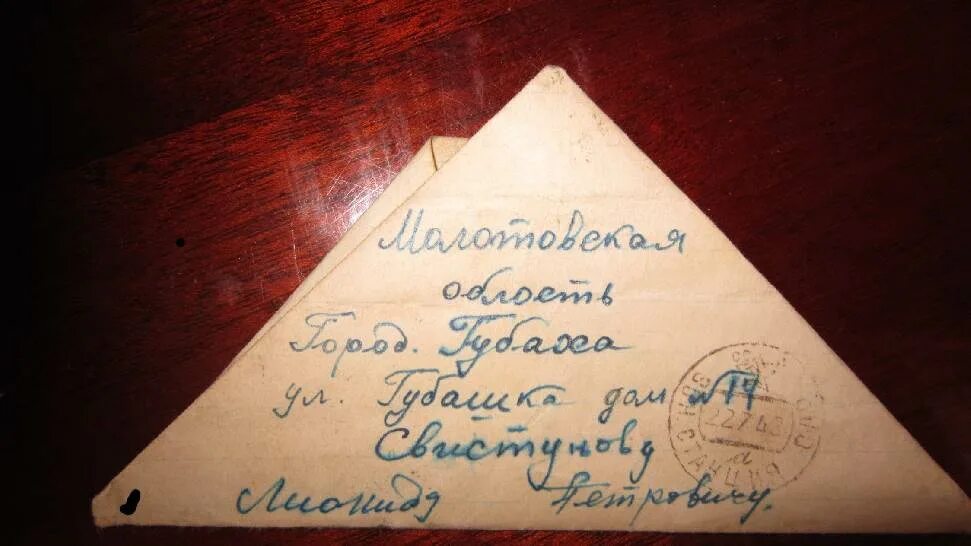 Молотовская
область
Город. Губаха
ул. Губашка дом №14
Свистунову
Лиониду Петровичу.
22 7 43